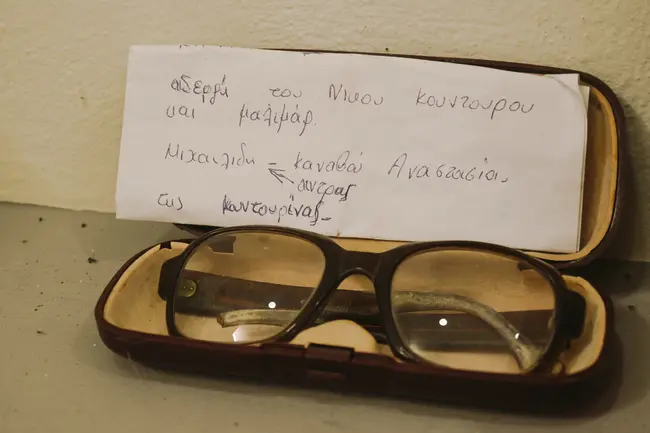 αδερφή του Νικου κουντουρου
και μαλιμάρ.
Μιχαιλιδη = καναβού Αναστασία,
αντρας
της κουντουρίνας_